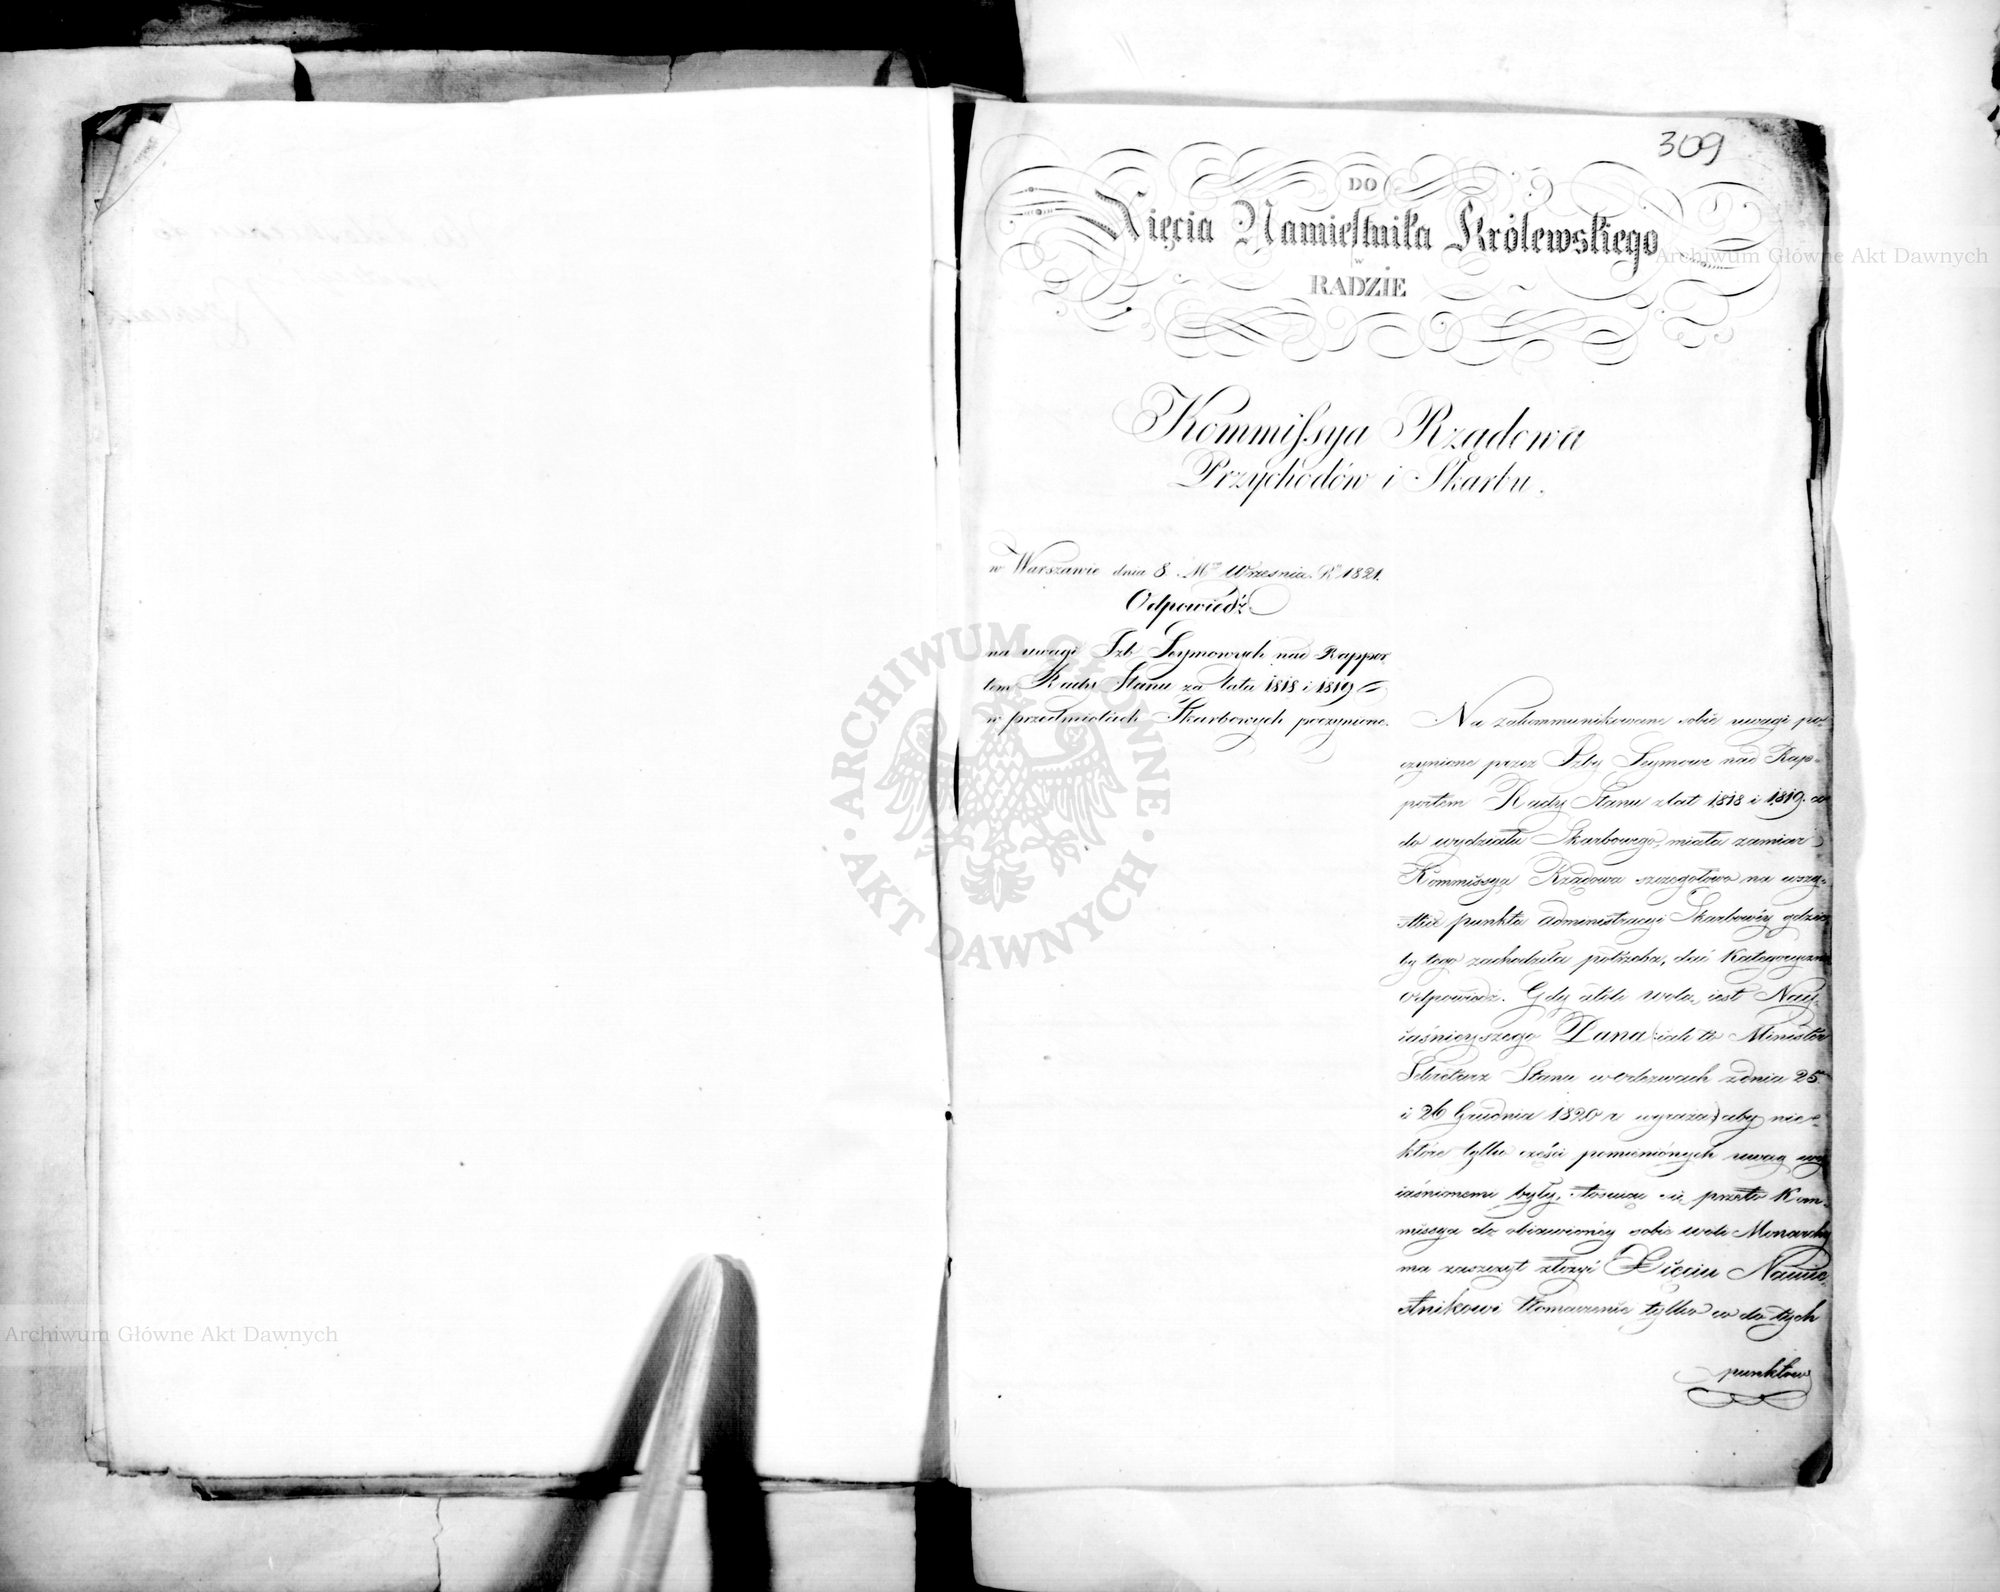 309
DO
Xięcia Namiestnika Królewskiego
w
RADZIE
Kommissya Rządowa
Przychodów i Skarbu.
w Warszawie dnia 8. Mca Września Rku 1821.
Odpowiedź
na uwagi Izb Seymowych nad Rappor
tem Rady Stanu za lata 1818 i 1819
w przedmiotach Skarbowych poczynione.
Na zakommunikowane sobie uwagi po-
czynione przez Izby Seymowe nad Rap-
portem Rady Stanu z lat 1818 i 1819. co
do wydziału Skarbowego, miała zamiar
Kommissya Rządowa szczegółowo na wszy-
stkie punkta administracyi Skarbowéy gdzie
by tego zachodziła potrzeba, dać kategoryczną
odpowiedź. Gdy atoli wolą jest Nay-
iaśnieyszego Pana (iak to Minister
Sekretarz Stanu w odezwach z dnia 25.
i 26 Grudnia 1820 r wyraża) aby nie-
które tylko części pomienionych uwag wy
iaśnionemi były, stosuiąc się przeto Kom-
missya do obiawionéy sobie woli Monarchy
ma zaszczyt złożyć Xięciu Namie-
stnikowi tłomaczenie tylko co do tych
punktów
Archiwum Główne Akt Dawnych
ARCHIWUM GŁÓWNE AKT DAWNYCH
Archiwum Główne Akt Dawnych